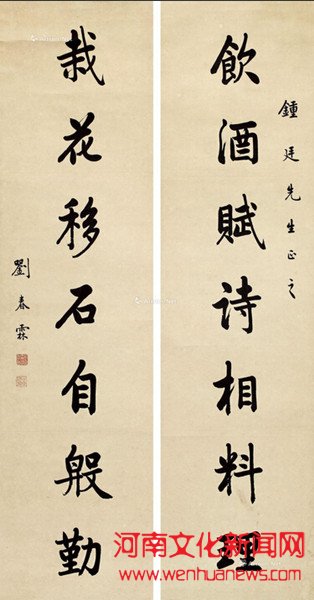 鍾廷先生正之
飲酒賦诗相料理
栽花移石自般勤
劉春霖
河南文化新闻网
www.wenhuanews.com